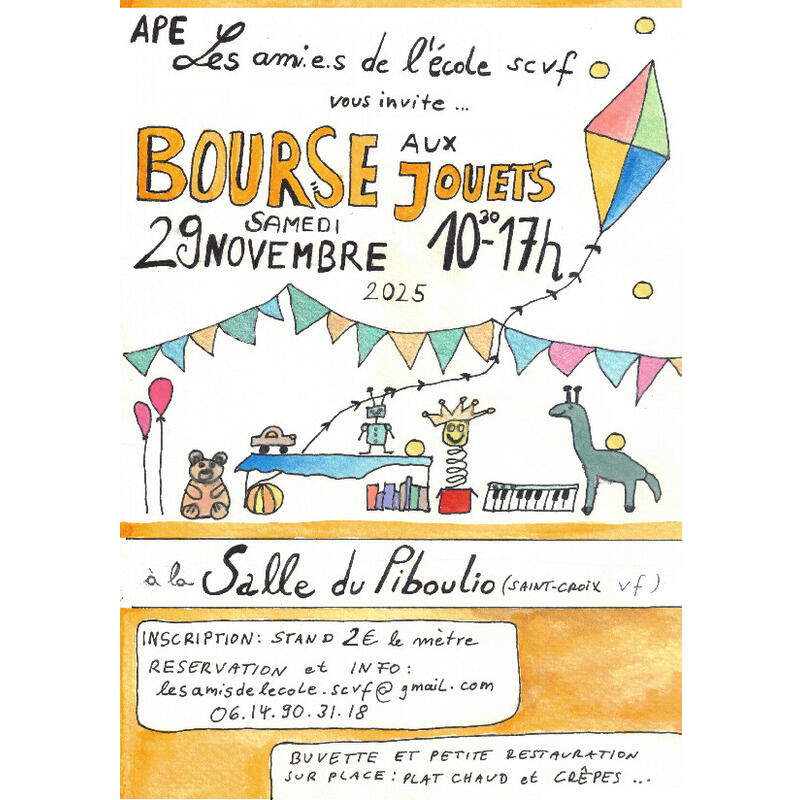 APE Les ami.e.s de l'école scvf
vous invite ...
BOURSE AUX JOUETS
SAMEDI
29 NOVEMBRE 10³⁰-17h
2025
à la Salle du Piboulio (SAINT-CROIX vf)
INSCRIPTION: STAND 2€ le mètre
RESERVATION et INFO:
lesamisdelecole.scvf@gmail.com
06.14.90.31.18
BUVETTE ET PETITE RESTAURATION
SUR PLACE: PLAT CHAUD et CRÊPES ...